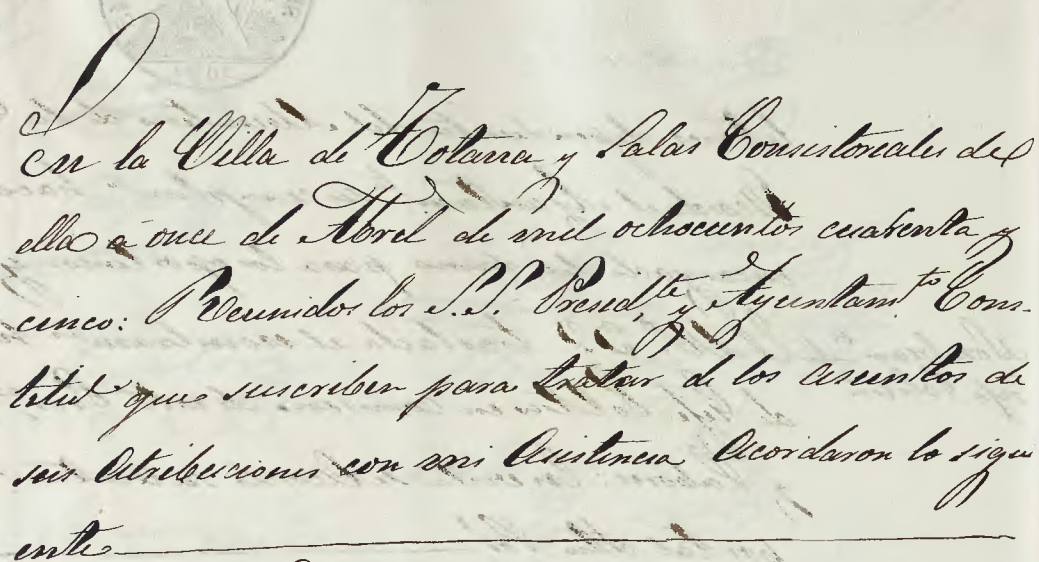 En la Villa de Totana y Salas Consistoriales de
ella á once de Abril de mil ochocientos cuarenta y
cinco: Reunidos los S.S. Presidte, y Ayuntamto Cons-
titul que suscriben para tratar de los asuntos de
sus atribuciones con mi asistencia Acordaron lo sigui
ente